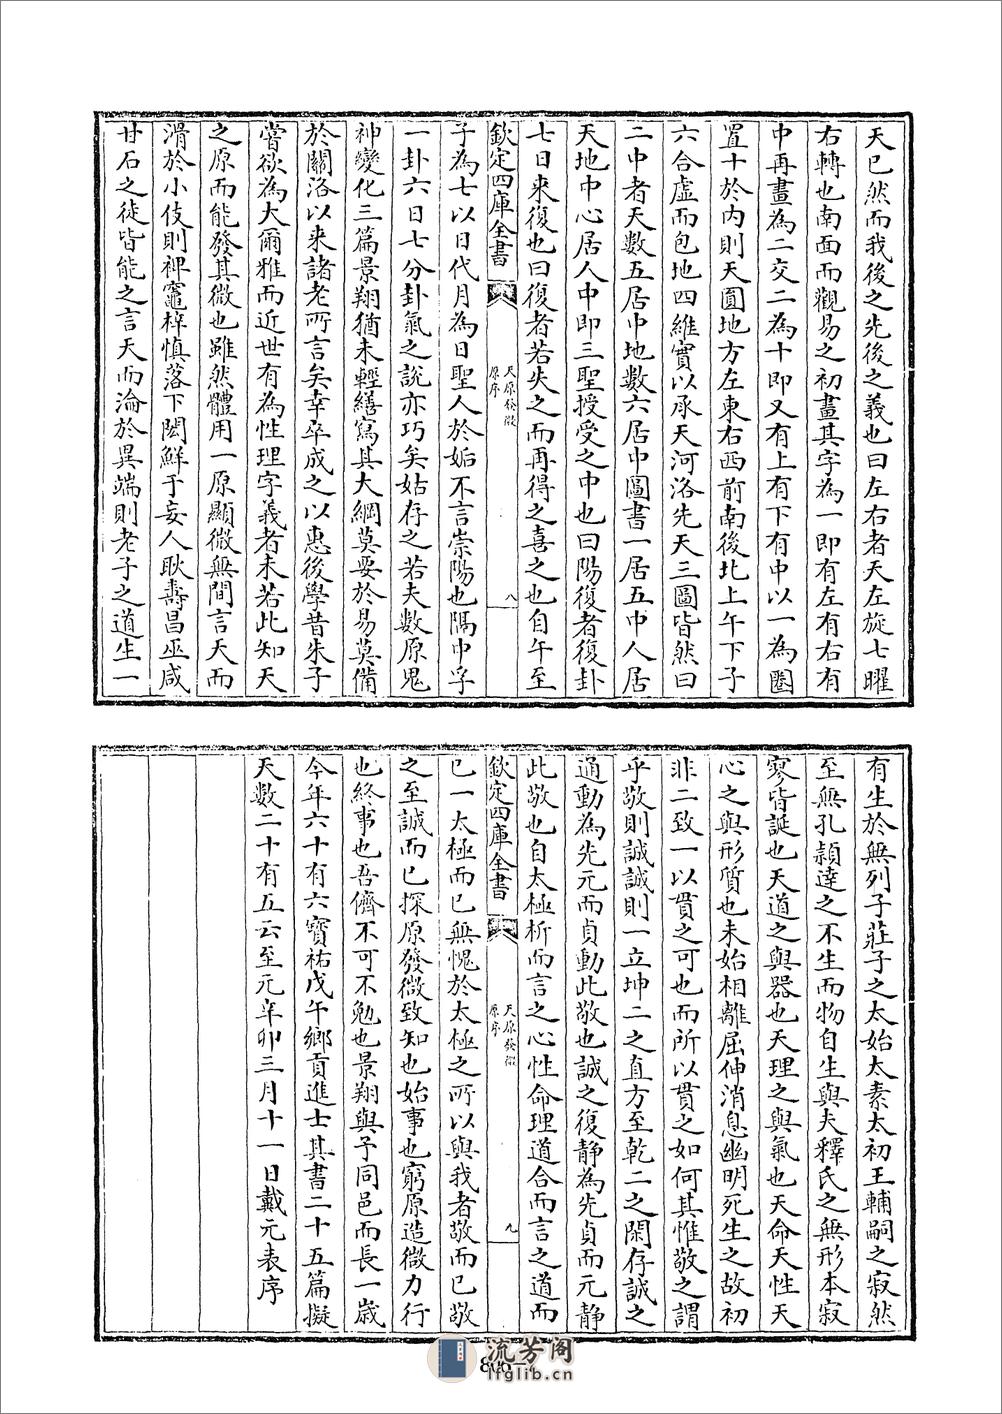 天已然而我後之先後之義也曰左右者天左旋七曜
右轉也南面而觀易之初畫其字為一即有左有右有
中再畫為二交二為十即又有上有下有中以一為圏
置十於内則天圎地方左東右西前南後北上午下子
六合虛而包地四維實以承天河洛先天三圖皆然曰
二中者天數五居中地數六居中圖書一居五中人居
天地中心居人中即三聖授受之中也曰陽復者復卦
七日來復也曰復者若失之而再得之喜之也自午至
欽定四庫全書
天原發微
原序
八
子為七以日代月為日聖人於姤不言崇陽也隅中孚
一卦六日七分卦氣之說亦巧矣姑存之若夫數原鬼
神變化三篇景翔猶未輕繕寫其大綱莫要於易莫備
於關洛以来諸老所言矣幸卒成之以惠後學昔朱子
嘗欲為大爾雅而近世有為性理字義者未若此知天
之原而能發其微也雖然體用一原顯微無間言天而
滑於小伎則裨竈梓慎落下閎鮮于妄人耿壽昌巫咸
甘石之徒皆能之言天而淪於異端則老子之道生一
有生於無列子莊子之太始太素太初王輔嗣之寂然
至無孔頴達之不生而物自生與夫釋氏之無形本寂
寥皆誕也天道之與器也天理之與氣也天命天性天
心之與形質也未始相離屈伸消息幽明死生之故初
非二致一以貫之可也而所以貫之如何其惟敬之謂
乎敬則誠誠則一立坤二之直方至乾二之閑存誠之
通動為先元而貞動此敬也誠之復静為先貞而元静
此敬也自太極析而言之心性命理道合而言之道而
欽定四庫全書
天原發微
原序
九
已一太極而已無愧於太極之所以與我者敬而已敬
之至誠而已探原發微致知也始事也窮原造微力行
也終事也吾儕不可不勉也景翔與予同邑而長一歳
今年六十有六寳祐戊午鄉貢進士其書二十五篇擬
天數二十有五云至元辛卯三月十一日戴元表序
流芳阁
lfglib.cn